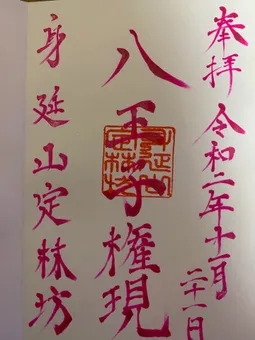 奉拝 令和二年十一月
二十一日
八王子権現
身延山定林坊